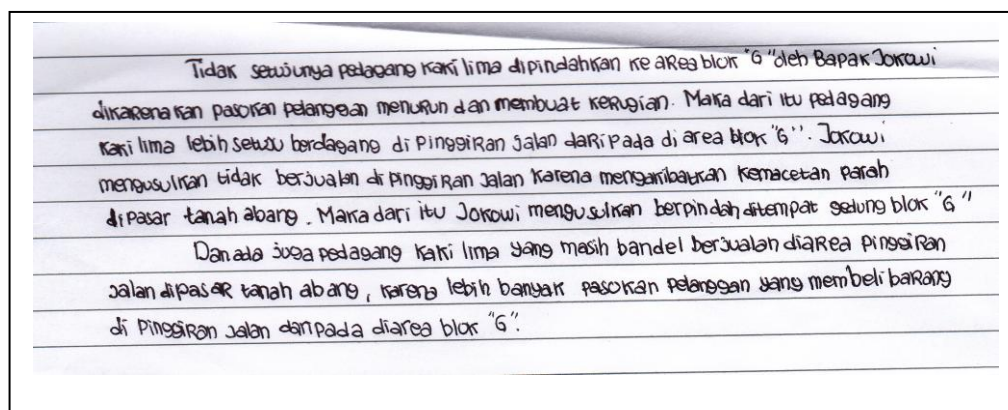 Tidak setujunya pedagang kaki lima dipindahkan ke area blok "G" oleh Bapak Jokowi
dikarenakan pasokan pelanggan menurun dan membuat kerugian. Maka dari itu pedagang
kaki lima lebih setuju berdagang di pinggiran jalan daripada di area blok "G". Jokowi
mengusulkan tidak berjualan di pinggiran jalan karena mengakibatkan kemacetan parah
dipasar tanah abang. Maka dari itu Jokowi mengusulkan berpindah ditempat gedung blok "G"
Dan ada juga pedagang kaki lima yang masih bandel berjualan diarea pinggiran
jalan dipasar tanah abang, karena lebih banyak pasokan pelanggan yang membeli barang
di pinggiran jalan daripada diarea blok "G".